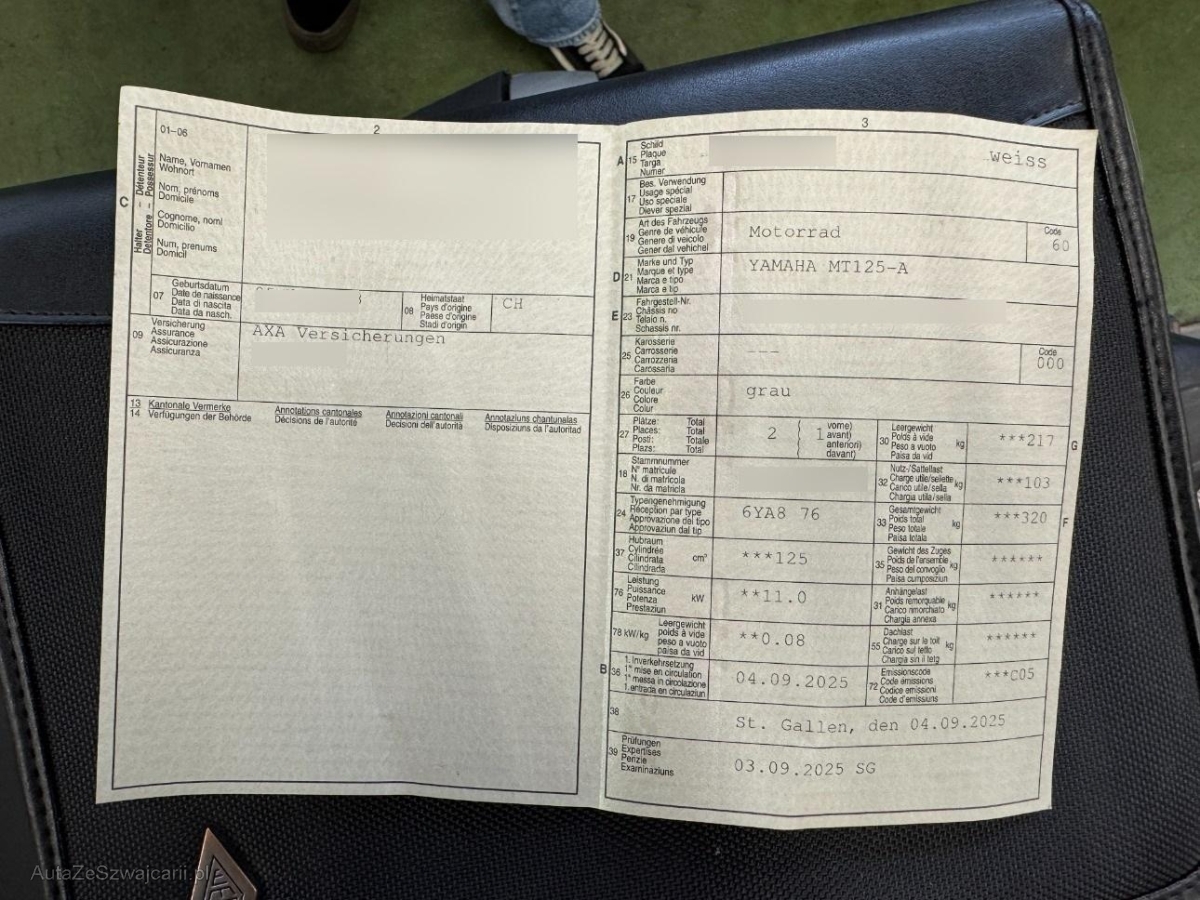 2
01-06
C
Halter – Détenteur
Detentore – Possessur
Name, Vornamen
Wohnort
Nom, prénoms
Domicile
Cognome, nomi
Domicilio
Num, prenums
Domicil
07
Geburtsdatum
Date de naissance
Data di nascita
Data da nasch.
08
Heimatstaat
Pays d'origine
Paese d'origine
Stadi d'origin
CH
09
Versicherung
Assurance
Assicurazione
Assicuranza
AXA Versicherungen
13 Kantonale Vermerke
14 Verfügungen der Behörde
Annotations cantonales
Décisions de l'autorité
Annotazioni cantonali
Decisioni dell'autorità
Annotaziuns chantunalas
Disposiziuns da l'autoritad
3
A 15
Schild
Plaque
Targa
Numer
weiss
17
Bes. Verwendung
Usage spécial
Uso speciale
Diever spezial
19
Art des Fahrzeugs
Genre de véhicule
Genere di veicolo
Gener dal vehichel
Motorrad
Code
60
D 21
Marke und Typ
Marque et type
Marca e tipo
Marca e tip
YAMAHA MT125-A
E 23
Fahrgestell-Nr.
Châssis no
Telaio n.
Schassis nr.
25
Karosserie
Carrosserie
Carrozzeria
Carossaria
---
Code
000
26
Farbe
Couleur
Colore
Colur
grau
27
Plätze: Total
Places: Total
Posti: Totale
Plazs: Total
2
1
vorne)
avant)
anteriori)
davant)
30
Leergewicht
Poids à vide
Peso a vuoto
Paisa da vid
kg
***217
G
18
Stammnummer
N° matricule
N. di matricola
Nr. da matricla
32
Nutz-/Sattellast
Charge utile/sellette
Carico utile/sella
Chargia utila/sella
kg
***103
24
Typengenehmigung
Réception par type
Approvazione del tipo
Approvaziun dal tip
6YA8 76
33
Gesamtgewicht
Poids total
Peso totale
Paisa totala
kg
***320
F
37
Hubraum
Cylindrée
Cilindrata
Cilindrada
cm³
***125
35
Gewicht des Zuges
Poids de l'ensemble
Peso del convoglio
Paisa cumposiziun
kg
******
76
Leistung
Puissance
Potenza
Prestaziun
kW
**11.0
31
Anhängelast
Poids remorquable
Carico rimorchiato
Chargia annexa
kg
******
78 kW/kg
Leergewicht
poids à vide
peso a vuoto
paisa da vid
**0.08
55
Dachlast
Charge sur le toit
Carico sul tetto
Chargia sin il tetg
kg
******
B 36
1. Inverkehrsetzung
1re mise en circulation
1a messa in circolazione
1. entrada en circulaziun
04.09.2025
72
Emissionscode
Code émissions
Codice emissioni
Code d'emissiuns
***C05
38
St. Gallen, den 04.09.2025
39
Prüfungen
Expertises
Perizie
Examinaziuns
03.09.2025 SG
AutaZeSzwajcarii.pl